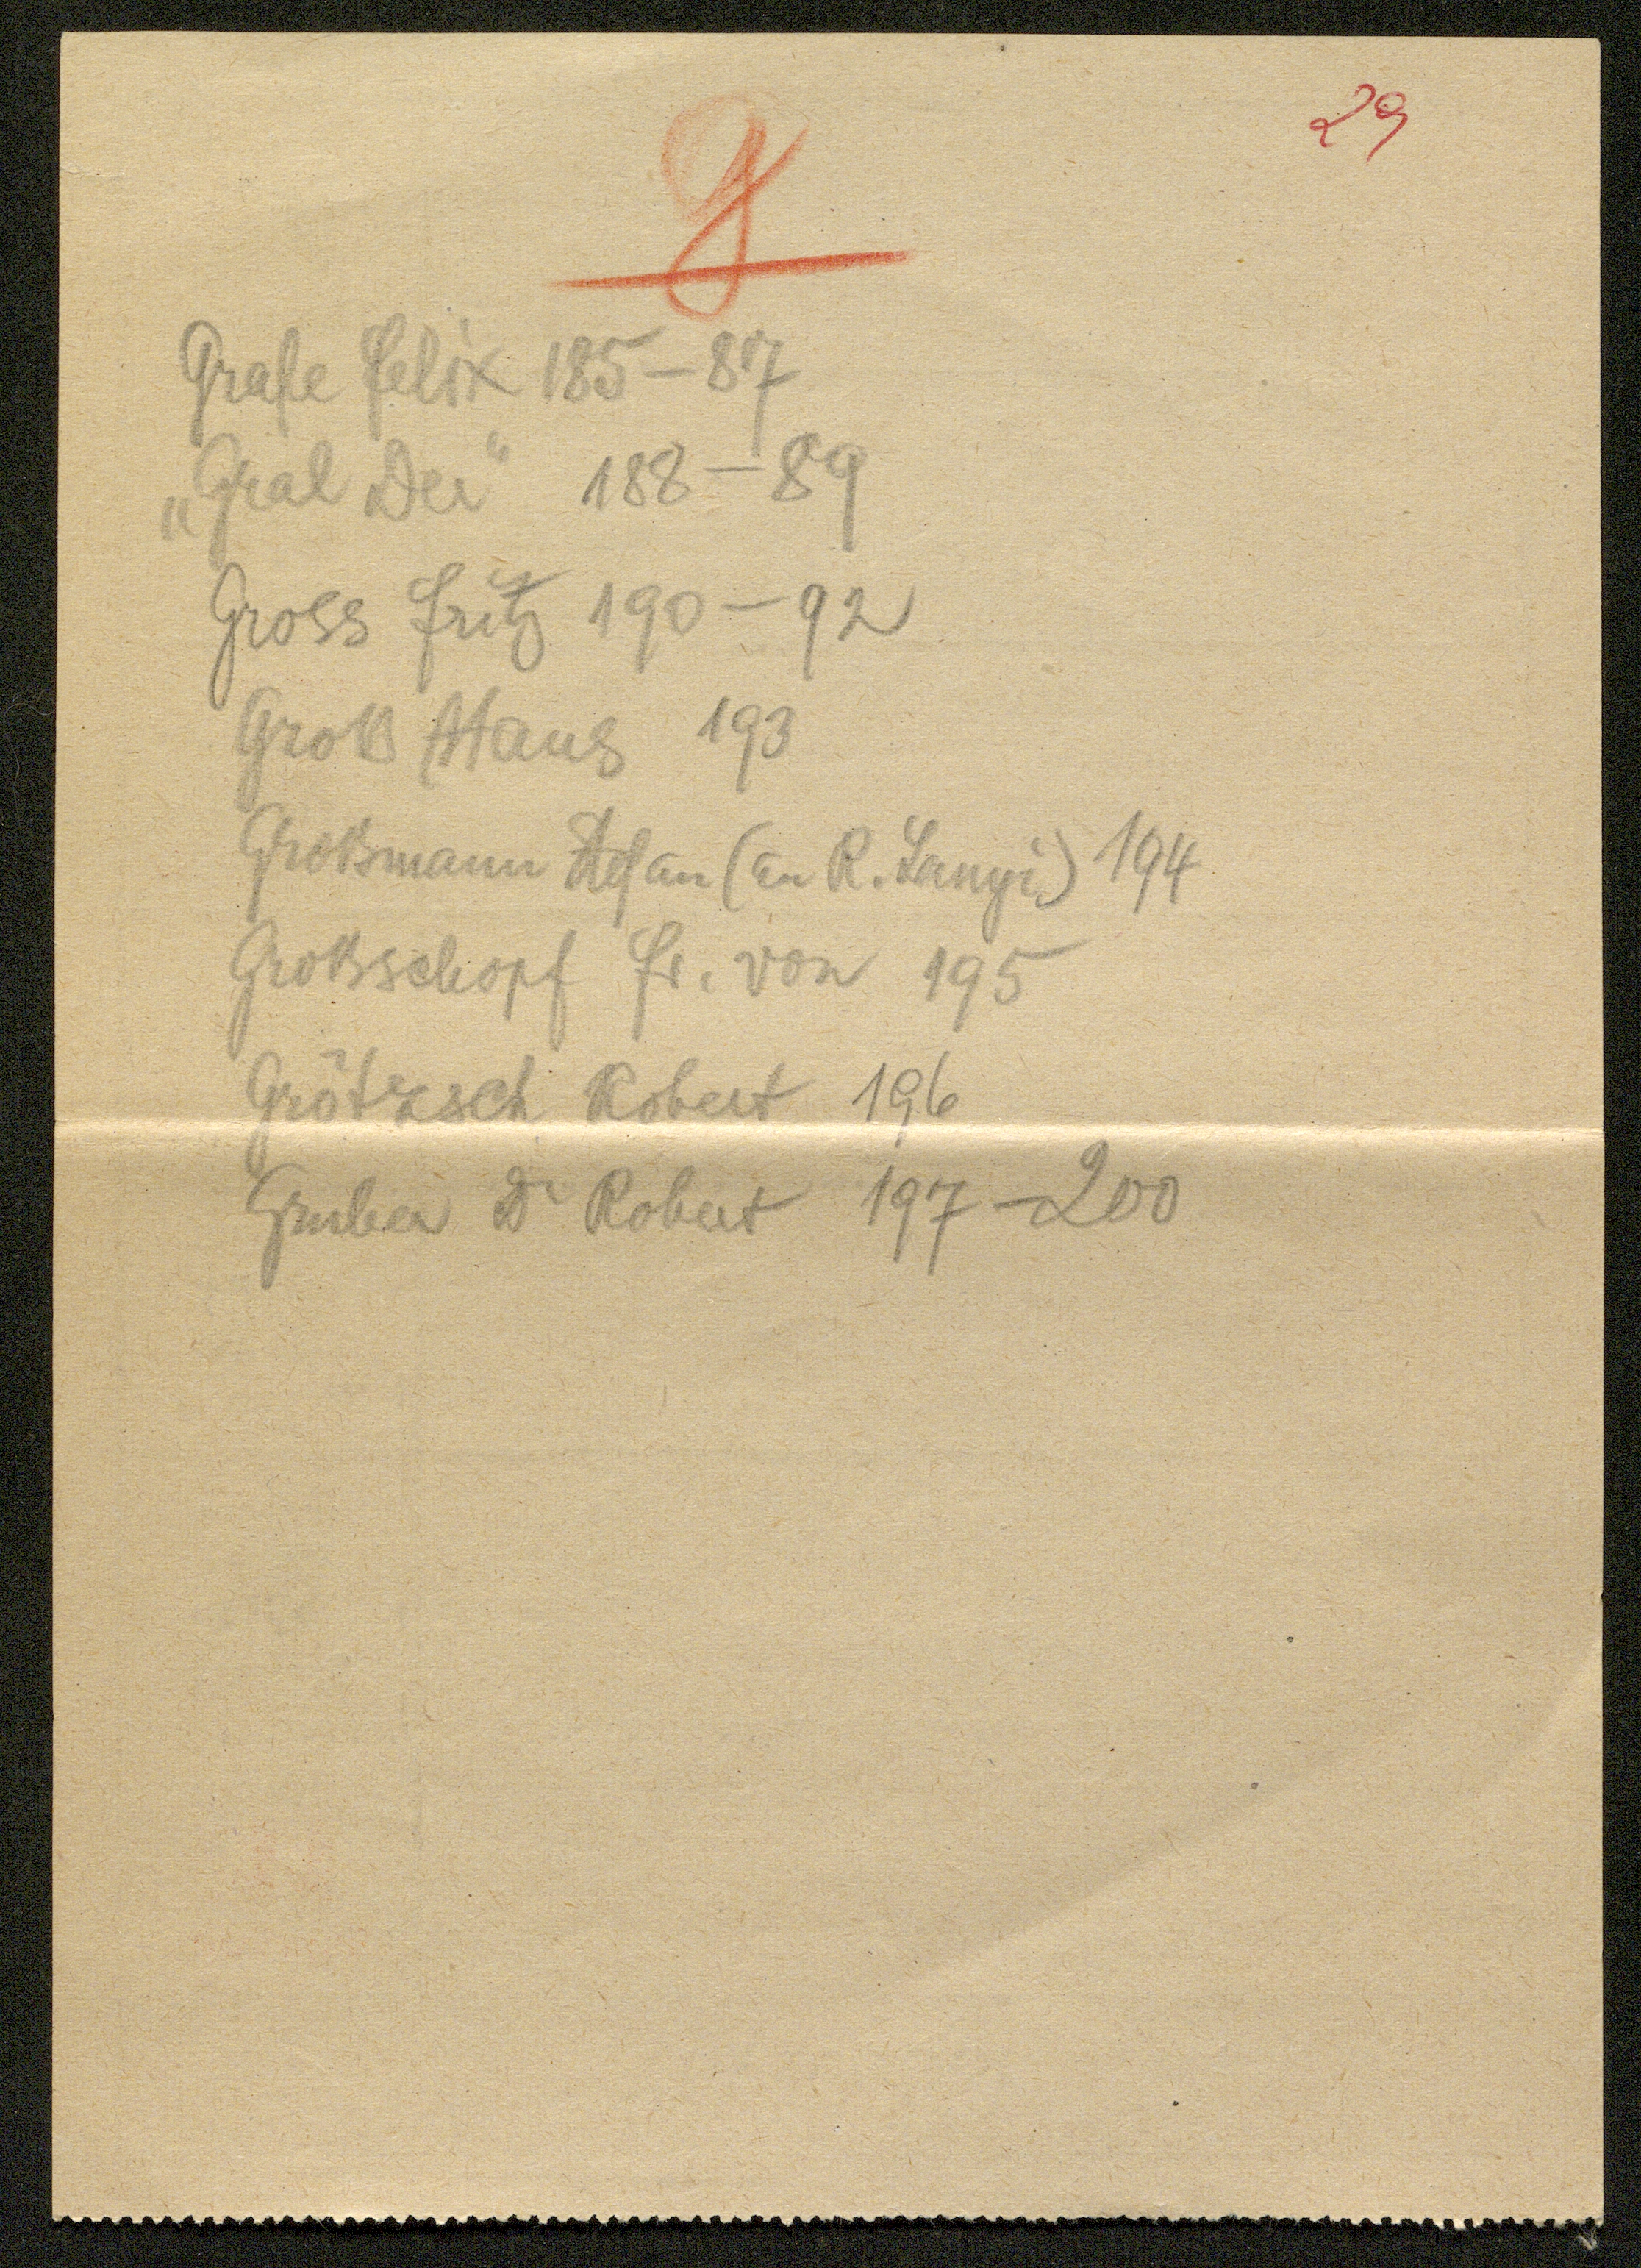 29
G
Grafe Felix 185-87
„Gral Der" 188-89
Gross Fritz 190-92
Groß Hans 193
Großmann Stefan (an R. Lanyi) 194
Großschopf Fr. von 195
Grötzsch Robert 196
Gruber Dr Robert 197-200